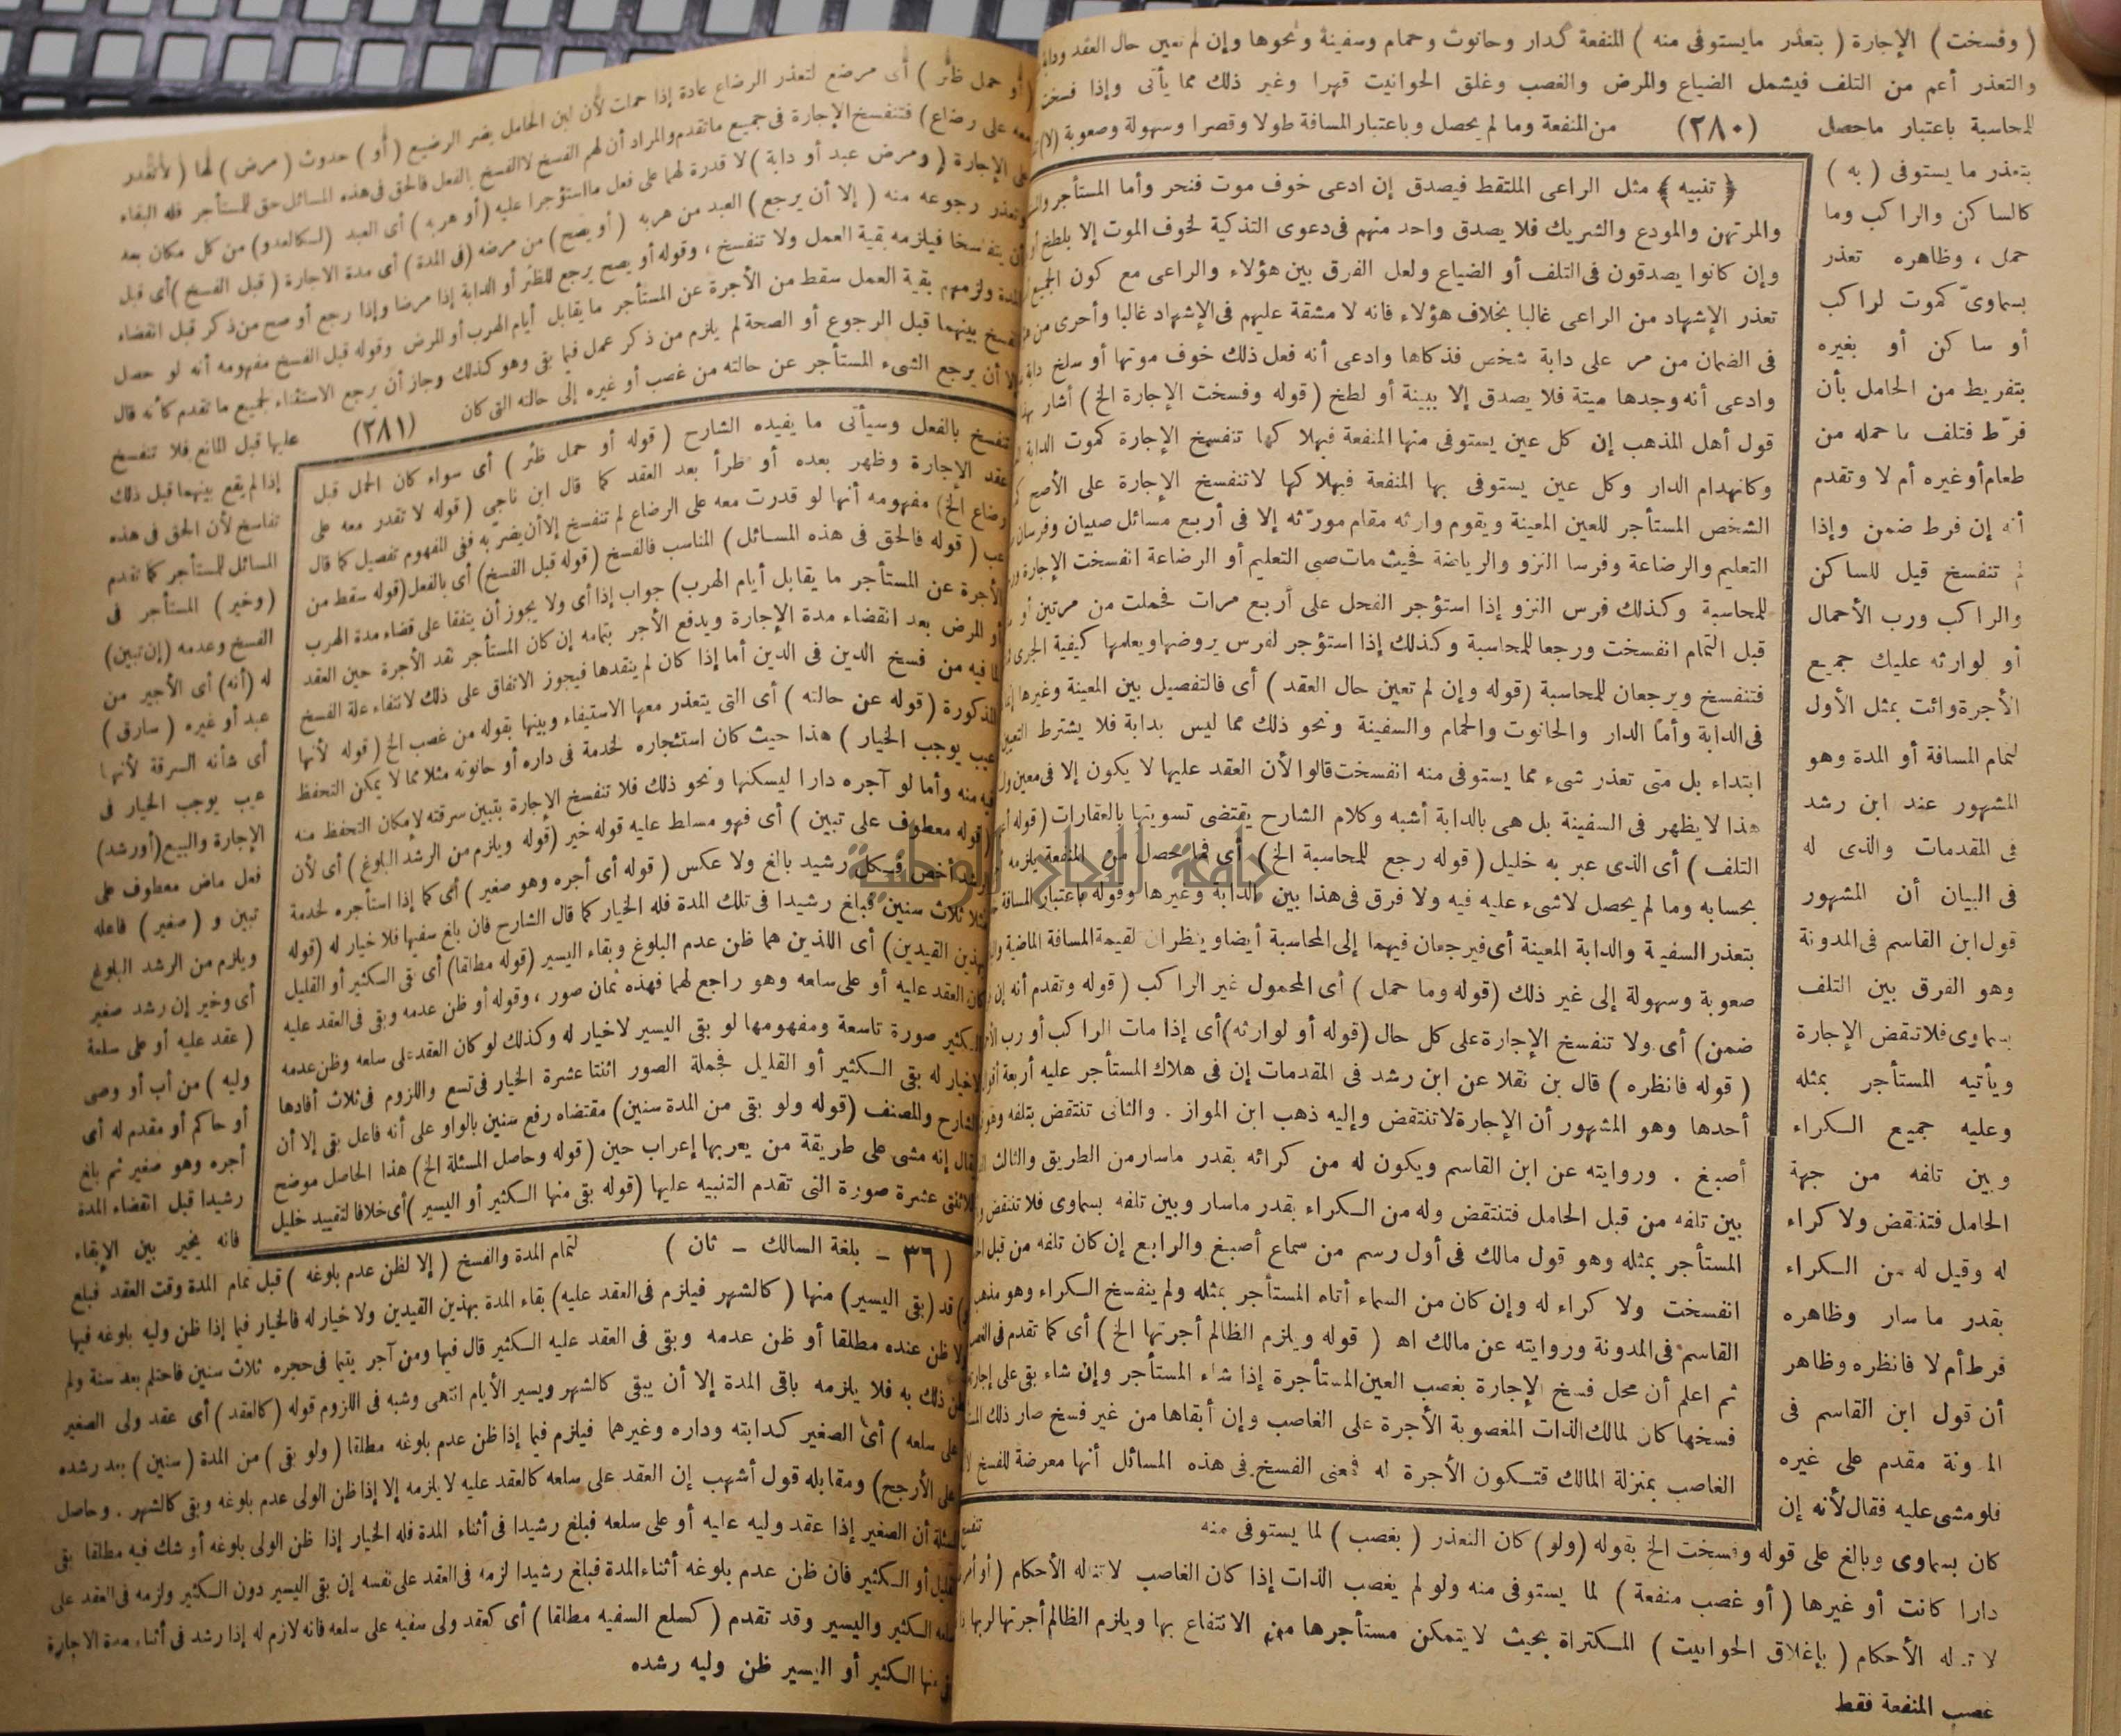 ( وفسخت ) الإجارة ( بتعذر مايستوفى منه ) المنفعة كدار وحانوت وحمام وسفينة ونحوها وإن لم تعين حال العقد ودابة
والتعذر أعم من التلف فيشمل الضياع والمرض والغصب وغلق الحوانيت قهرا وغير ذلك مما يأتى وإذا فسخت
للمحاسبة باعتبار ماحصل (٢٨٠) من المنفعة وما لم يحصل وباعتبار المسافة طولا وقصرا وسهولة وصعوبة (لا)
بتعذر ما يستوفى ( به )
كالساكن والراكب وما
حمل ، وظاهره تعذر
بسماوىّ كموت لراكب
أو ساكن أو بغيره
بتفريط من الحامل بأن
فرّط فتلف ما حمله من
طعام أو غيره أم لا وتقدم
أنه إن فرط ضمن وإذا
لم تنفسخ قيل للساكن
والراكب ورب الأحمال
أو لوارثه عليك جميع
الأجرة وائت بمثل الأول
لتمام المسافة أو المدة وهو
المشهور عند ابن رشد
فى المقدمات والذى له
فى البيان أن المشهور
قول ابن القاسم فى المدونة
وهو الفرق بين التلف
بسماوى فلا تنقض الإجارة
ويأتيه المستأجر بمثله
وعليه جميع الكراء
وبين تلفه من جهة
الحامل فتنقض ولا كراء
له وقيل له من الكراء
بقدر ما سار وظاهره
فرط أم لا فانظره وظاهر
أن قول ابن القاسم فى
المدونة مقدم على غيره
فلو مشى عليه فقال لأنه إن
﴿ تنبيه ﴾ مثل الراعى الملتقط فيصدق إن ادعى خوف موت فنحر وأما المستأجر
والمرتهن والمودع والشريك فلا يصدق واحد منهم فى دعوى التذكية لخوف الموت إلا بلطخ أو
وإن كانوا يصدقون فى التلف أو الضياع ولعل الفرق بين هؤلاء والراعى مع كون الجميع
تعذر الإشهاد من الراعى غالبا بخلاف هؤلاء فانه لا مشقة عليهم فى الإشهاد غالبا وأحرى من
فى الضمان من مر على دابة شخص فذكاها وادعى أنه فعل ذلك خوف موتها أو سلخ دابة
وادعى أنه وجدها ميتة فلا يصدق إلا ببينة أو لطخ ( قوله وفسخت الإجارة الخ ) أشار بهذا
قول أهل المذهب إن كل عين يستوفى منها المنفعة فبهلاكها تنفسخ الإجارة كموت الدابة
وكانهدام الدار وكل عين يستوفى بها المنفعة فبهلاكها لاتنفسخ الإجارة على الأصح
الشخص المستأجر للعين المعينة ويقوم وارثه مقام مورّثه إلا فى أربع مسائل صبيان وفرسان
التعليم والرضاعة وفرسا النزو والرياضة فحيث مات صبى التعليم أو الرضاعة انفسخت الإجارة
للمحاسبة وكذلك فرس النزو إذا استؤجر الفحل على أربع مرات فحملت من مرتين أو
قبل التمام انفسخت ورجعا للمحاسبة وكذلك إذا استؤجر لفرس يروضها ويعلمها كيفية الجرى
فتنفسخ ويرجعان للمحاسبة (قوله وإن لم تعين حال العقد ) أى فالتفصيل بين المعينة وغيرها
فى الدابة وأما الدار والحانوت والحمام والسفينة ونحو ذلك مما ليس بدابة فلا يشترط التعيين
ابتداء بل متى تعذر شىء مما يستوفى منه انفسخت قالوا لأن العقد عليها لا يكون إلا فى معين
هذا لا يظهر فى السفينة بل هى بالدابة أشبه وكلام الشارح يقتضى تسويتها بالعقارات (قوله
التلف ) أى الذى عبر به خليل ( قوله رجع للمحاسبة الخ ) أى فما حصل من المنفعة يلزمه
بحسابه وما لم يحصل لاشىء عليه فيه ولا فرق فى هذا بين الدابة وغيرها وقوله باعتبار المسافة
بتعذر السفينة والدابة المعينة أى فيرجعان فيهما إلى المحاسبة أيضا وينظران لقيمة المسافة الماضية
صعوبة وسهولة إلى غير ذلك (قوله وما حمل ) أى المحمول غير الراكب ( قوله وتقدم أنه إن
ضمن) أى ولا تنفسخ الإجارة على كل حال (قوله أو لوارثه) أى إذا مات الراكب أو رب
( قوله فانظره ) قال بن نقلا عن ابن رشد فى المقدمات إن فى هلاك المستأجر عليه أربعة أقوال
أحدها وهو المشهور أن الإجارة لاتنتقض وإليه ذهب ابن المواز . والثانى تنتقض بتلفه وهو
أصبغ . وروايته عن ابن القاسم ويكون له من كرائه بقدر ماسار من الطريق والثالث
بين تلفه من قبل الحامل فتنتقض وله من الكراء بقدر ماسار وبين تلفه بسماوى فلا تنتقض
المستأجر بمثله وهو قول مالك فى أول رسم من سماع أصبغ والرابع إن كان تلفه من قبل
انفسخت ولا كراء له وإن كان من السماء أتاه المستأجر بمثله ولم ينفسخ الكراء وهو مذهب
القاسم فى المدونة وروايته عن مالك اه ( قوله ويلزم الظالم أجرتها الخ ) أى كما تقدم فى
ثم اعلم أن محل فسخ الإجارة بغصب العين المستأجرة إذا شاء المستأجر وإن شاء بقى على إجارته
فسخها كان لمالك الذات المغصوبة الأجرة على الغاصب وإن أبقاها من غير فسخ صار ذلك
الغاصب بمنزلة المالك فتكون الأجرة له فمعنى الفسخ فى هذه المسائل أنها معرضة للفسخ
تنفسخ
كان بسماوى وبالغ على قوله وفسخت الخ بقوله (ولو) كان التعذر ( بغصب ) لما يستوفى منه
دارا كانت أو غيرها ( أو غصب منفعة ) لما يستوفى منه ولو لم يغصب الذات إذا كان الغاصب لاتناله الأحكام (أو أمر
لا تناله الأحكام ( بإغلاق الحوانيت ) المكتراة بحيث لا يتمكن مستأجرها من الانتفاع بها ويلزم الظالم أجرتها لربها
غصب المنفعة فقط
أو حمل ظئر ) أى مرضع لتعذر الرضاع عادة إذا حملت لأن لبن الحامل يضر الرضيع ( أو ) حدوث ( مرض ) لها ( لاتقدر
معه على رضاع) فتنفسخ الإجارة فى جميع ماتقدم والمراد أن لهم الفسخ لا الفسخ بالفعل فالحق فى هذه المسائل حق للمستأجر فله البقاء
على الإجارة ( ومرض عبد أو دابة ) لا قدرة لهما على فعل ما استؤجرا عليه ( أو هربه ) أى العبد (لكالعدو) من كل مكان بعد
وتعذر رجوعه منه ( إلا أن يرجع ) العبد من هربه ( أو يصح) من مرضه (فى المدة ) أى مدة الاجارة ( قبل الفسخ ) أى قبل
أن يتفاسخا فيلزمه بقية العمل ولا تنفسخ ، وقوله أو يصح يرجع للظئر أو الدابة إذا مرضا وإذا رجع أو صح من ذكر قبل انقضاء
المدة ولزمهم بقية العمل سقط من الأجرة عن المستأجر ما يقابل أيام الهرب أو المرض وقوله قبل الفسخ مفهومه أنه لو حصل
الفسخ بينهما قبل الرجوع أو الصحة لم يلزم من ذكر عمل فيما بقى وهو كذلك وجاز أن يرجع الاستثناء لجميع ماتقدم كأنه قال
إلا أن يرجع الشىء المستأجر عن حالته من غصب أو غيره إلى حالته التى كان (٢٨١) عليها قبل المانع فلا تنفسخ
إذا لم يقع بينهما قبل ذلك
تفاسخ لأن الحق فى هذه
المسائل للمستأجر كما تقدم
(وخير) المستأجر فى
الفسخ وعدمه (إن تبين)
له (أنه) أى الأجير من
عبد أو غيره ( سارق )
أى شأنه السرقة لأنها
عيب يوجب الخيار فى
الإجارة والبيع (أو رشد)
فعل ماض معطوف على
تبين و ( صغير ) فاعله
ويلزم من الرشد البلوغ
أى وخير إن رشد صغير
( عقد عليه أو على سلعة
وليه ) من أب أو وصى
أو حاكم أو مقدم له أى
أجره وهو صغير ثم بلغ
رشيدا قبل انقضاء المدة
فانه يخير بين الإبقاء
تنفسخ بالفعل وسيأتى ما يفيده الشارح ( قوله أو حمل ظئر ) أى سواء كان الحمل قبل
عقد الإجارة وظهر بعده أو طرأ بعد العقد كما قال ابن ناجى ( قوله لا تقدر معه على
رضاع الخ) مفهومه أنها لو قدرت معه على الرضاع لم تنفسخ إلا أن يضرّ به ففى المفهوم تفصيل كما قال
عب ( قوله فالحق فى هذه المسائل ) المناسب فالفسخ (قوله قبل الفسخ) أى بالفعل (قوله سقط من
الأجرة عن المستأجر ما يقابل أيام الهرب) جواب إذا أى ولا يجوز أن يتفقا على قضاء مدة الهرب
أو المرض بعد انقضاء مدة الإجارة ويدفع الأجر بتمامه إن كان المستأجر نقد الأجرة حين العقد
لما فيه من فسخ الدين فى الدين أما إذا كان لم ينقدها فيجوز الاتفاق على ذلك لانتفاء علة الفسخ
المذكورة ( قوله عن حالته ) أى التى يتعذر معها الاستيفاء وبينها بقوله من غصب الخ ( قوله لأنها
عيب يوجب الخيار ) هذا حيث كان استئجاره لخدمة فى داره أو حانوته مثلا مما لا يمكن التحفظ
فيه منه وأما لو آجره دارا ليسكنها ونحو ذلك فلا تنفسخ الإجارة بتبين سرقته لإمكان التحفظ منه
( قوله معطوف على تبين ) أى فهو مسلط عليه قوله خير (قوله ويلزم من الرشد البلوغ ) أى لأن
الرشد أخص فكل رشيد بالغ ولا عكس ( قوله أى أجره وهو صغير ) أى كما إذا استأجره لخدمة
مثلا ثلاث سنين فبلغ رشيدا فى تلك المدة فله الخيار كما قال الشارح فان بلغ سفيها فلا خيار له (قوله
بهذين القيدين) أى اللذين هما ظن عدم البلوغ وبقاء اليسير (قوله مطلقا) أى بقى الكثير أو القليل
كان العقد عليه أو على سلعه وهو راجع لهما فهذه ثمان صور ، وقوله أو ظن عدمه وبقى فى العقد عليه
الكثير صورة تاسعة ومفهومها لو بقى اليسير لاخيار له وكذلك لو كان العقد على سلعه وظن عدمه
لاخيار له بقى الكثير أو القليل فجملة الصور اثنتا عشرة الخيار فى تسع واللزوم فى ثلاث أفادها
الشارح والمصنف (قوله ولو بقى من المدة سنين) مقتضاه رفع سنين بالواو على أنه فاعل بقى إلا أن
يقال إنه مشى على طريقة من يعربها إعراب حين (قوله وحاصل المسئلة الخ) هذا الحاصل موضح
للاثنتى عشرة صورة التى تقدم التنبيه عليها (قوله بقى منها الكثير أو اليسير ) أى خلافا لتقييد خليل
( ٣٦ - بلغة السالك - ثان )
لتمام المدة والفسخ ( إلا لظن عدم بلوغه ) قبل تمام المدة وقت العقد فبلغ
(و) قد (بقى اليسير) منها ( كالشهر فيلزم فى العقد عليه) بقاء المدة بهذين القيدين ولا خيار له فالخيار فيما إذا ظن وليه بلوغه فيها
أو لا ظن عنده مطلقا أو ظن عدمه وبقى فى العقد عليه الكثير قال فيها ومن آجر يتيما فى حجره ثلاث سنين فاحتلم بعد سنة ولم
يظن ذلك به فلا يلزمه باقى المدة إلا أن يبقى كالشهر ويسير الأيام انتهى وشبه فى اللزوم قوله (كالعقد ) أى عقد ولى الصغير
على سلعه ) أى الصغير كدابته وداره وغيرهما فيلزم فيما إذا ظن عدم بلوغه مطلقا ( ولو بقى ) من المدة ( سنين ) بعد رشده
على الأرجح) ومقابله قول أشهب إن العقد على سلعه كالعقد عليه لا يلزمه إلا إذا ظن الولى عدم بلوغه وبقى كالشهر . وحاصل
المسئلة أن الصغير إذا عقد وليه عليه أو على سلعه فبلغ رشيدا فى أثناء المدة فله الخيار إذا ظن الولى بلوغه أو شك فيه مطلقا بقى
القليل أو الكثير فان ظن عدم بلوغه أثناء المدة فبلغ رشيدا لزمه فى العقد على نفسه إن بقى اليسير دون الكثير ولزمه فى العقد على
سلعه الكثير واليسير وقد تقدم ( كسلع السفيه مطلقا ) أى كعقد ولى سفيه على سلعه فانه لازم له إذا رشد فى أثناء مدة الاجارة
بقى منها الكثير أو اليسير ظن وليه رشده
جامعة النجاح الوطنية